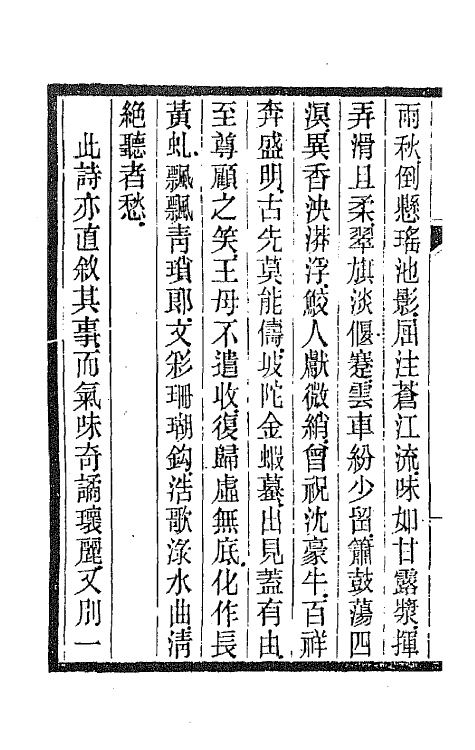 雨秋.倒懸瑤池影.屈注蒼江流.味如甘露漿.揮
弄滑且柔.翠旗淡偃蹇.雲車紛少留.簫鼓蕩四
溟.異香泱漭浮.鮫人獻微綃.曾祝沈豪牛.百祥
奔盛明.古先莫能儔.坡陀金蝦蟇.出見蓋有由.
至尊顧之笑.王母不遣收.復歸虛無底.化作長
黃虬.飄飄青瑣郎.文彩珊瑚鈎.浩歌淥水曲.清
絕聽者愁.
此詩亦直敘其事.而氣味奇譎瓌麗.又別一